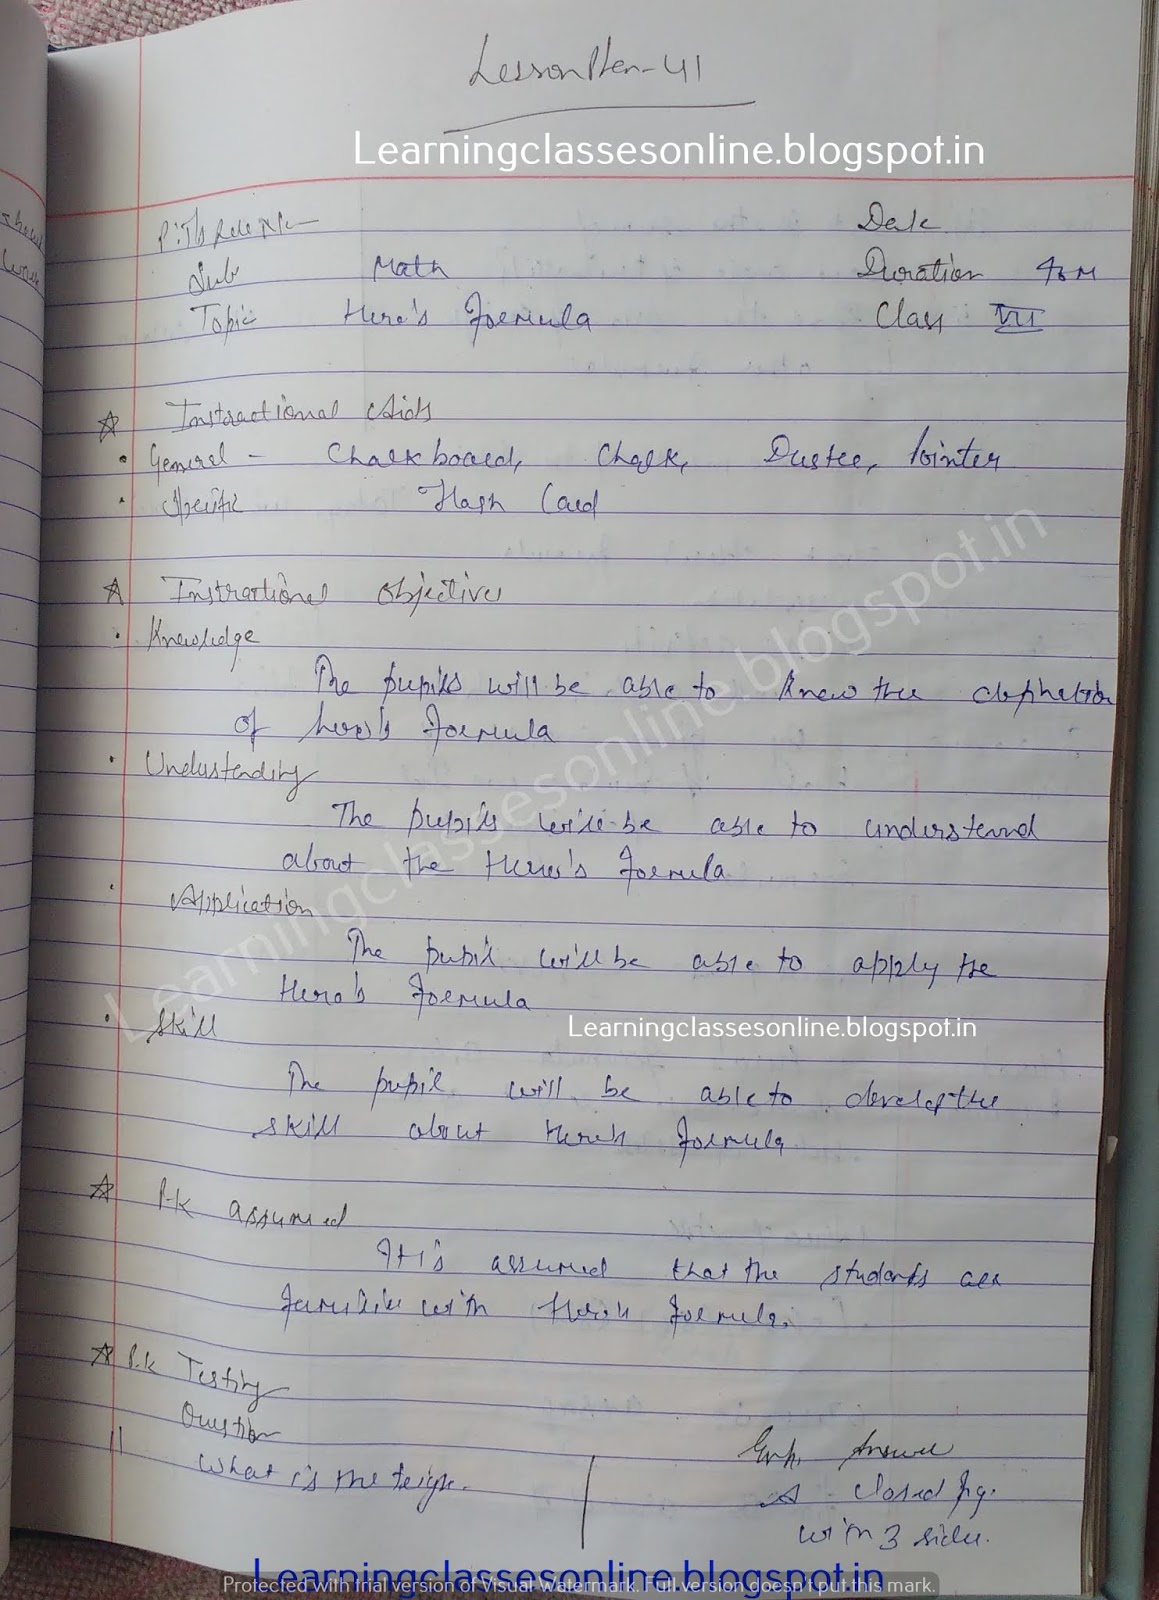 Lesson Plan-41
Learningclassesonline.blogspot.in
Date
Sub Math Duration
Topic Hero's Formula Class VII
Instructional Aids
General - Chalkboard, Chalk, Duster, Pointer
Specific Flash Card
Instructional objectives
Knowledge
The pupils will be able to know the
of hero's Formula
Understanding
The pupils will be able to understand
about the Hero's Formula
Application
The pupil will be able to apply the
Hero's Formula
Learningclassesonline.blogspot.in
Skill
The pupil will be able to develop the
skill about Hero's Formula
P.K assumed
It is assumed that the students are
familiar with Hero's Formula.
P.K Testing
Question Exp. Answer
What is the A closed fig.
with 3 side.
Learningclassesonline.blogspot.in
Learningclassesonline.blogspot.in
Protected with trial version of Visual Watermark. Full version doesn't put this mark.